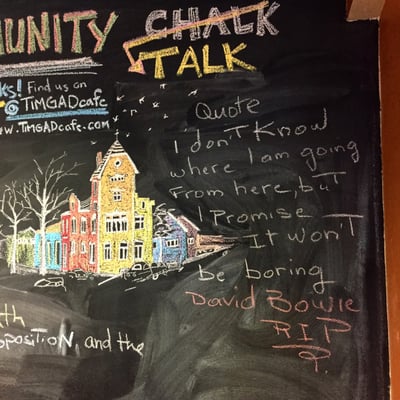 MUNITY CHALK
TALK
ks! Find us on
@TIMGADcafe
www.TIMGADcafe.com
Quote
I don't Know
where I am going
From here, but
I Promise
It won't
be boring
David Bowie
RIP
?.
th
position, and the